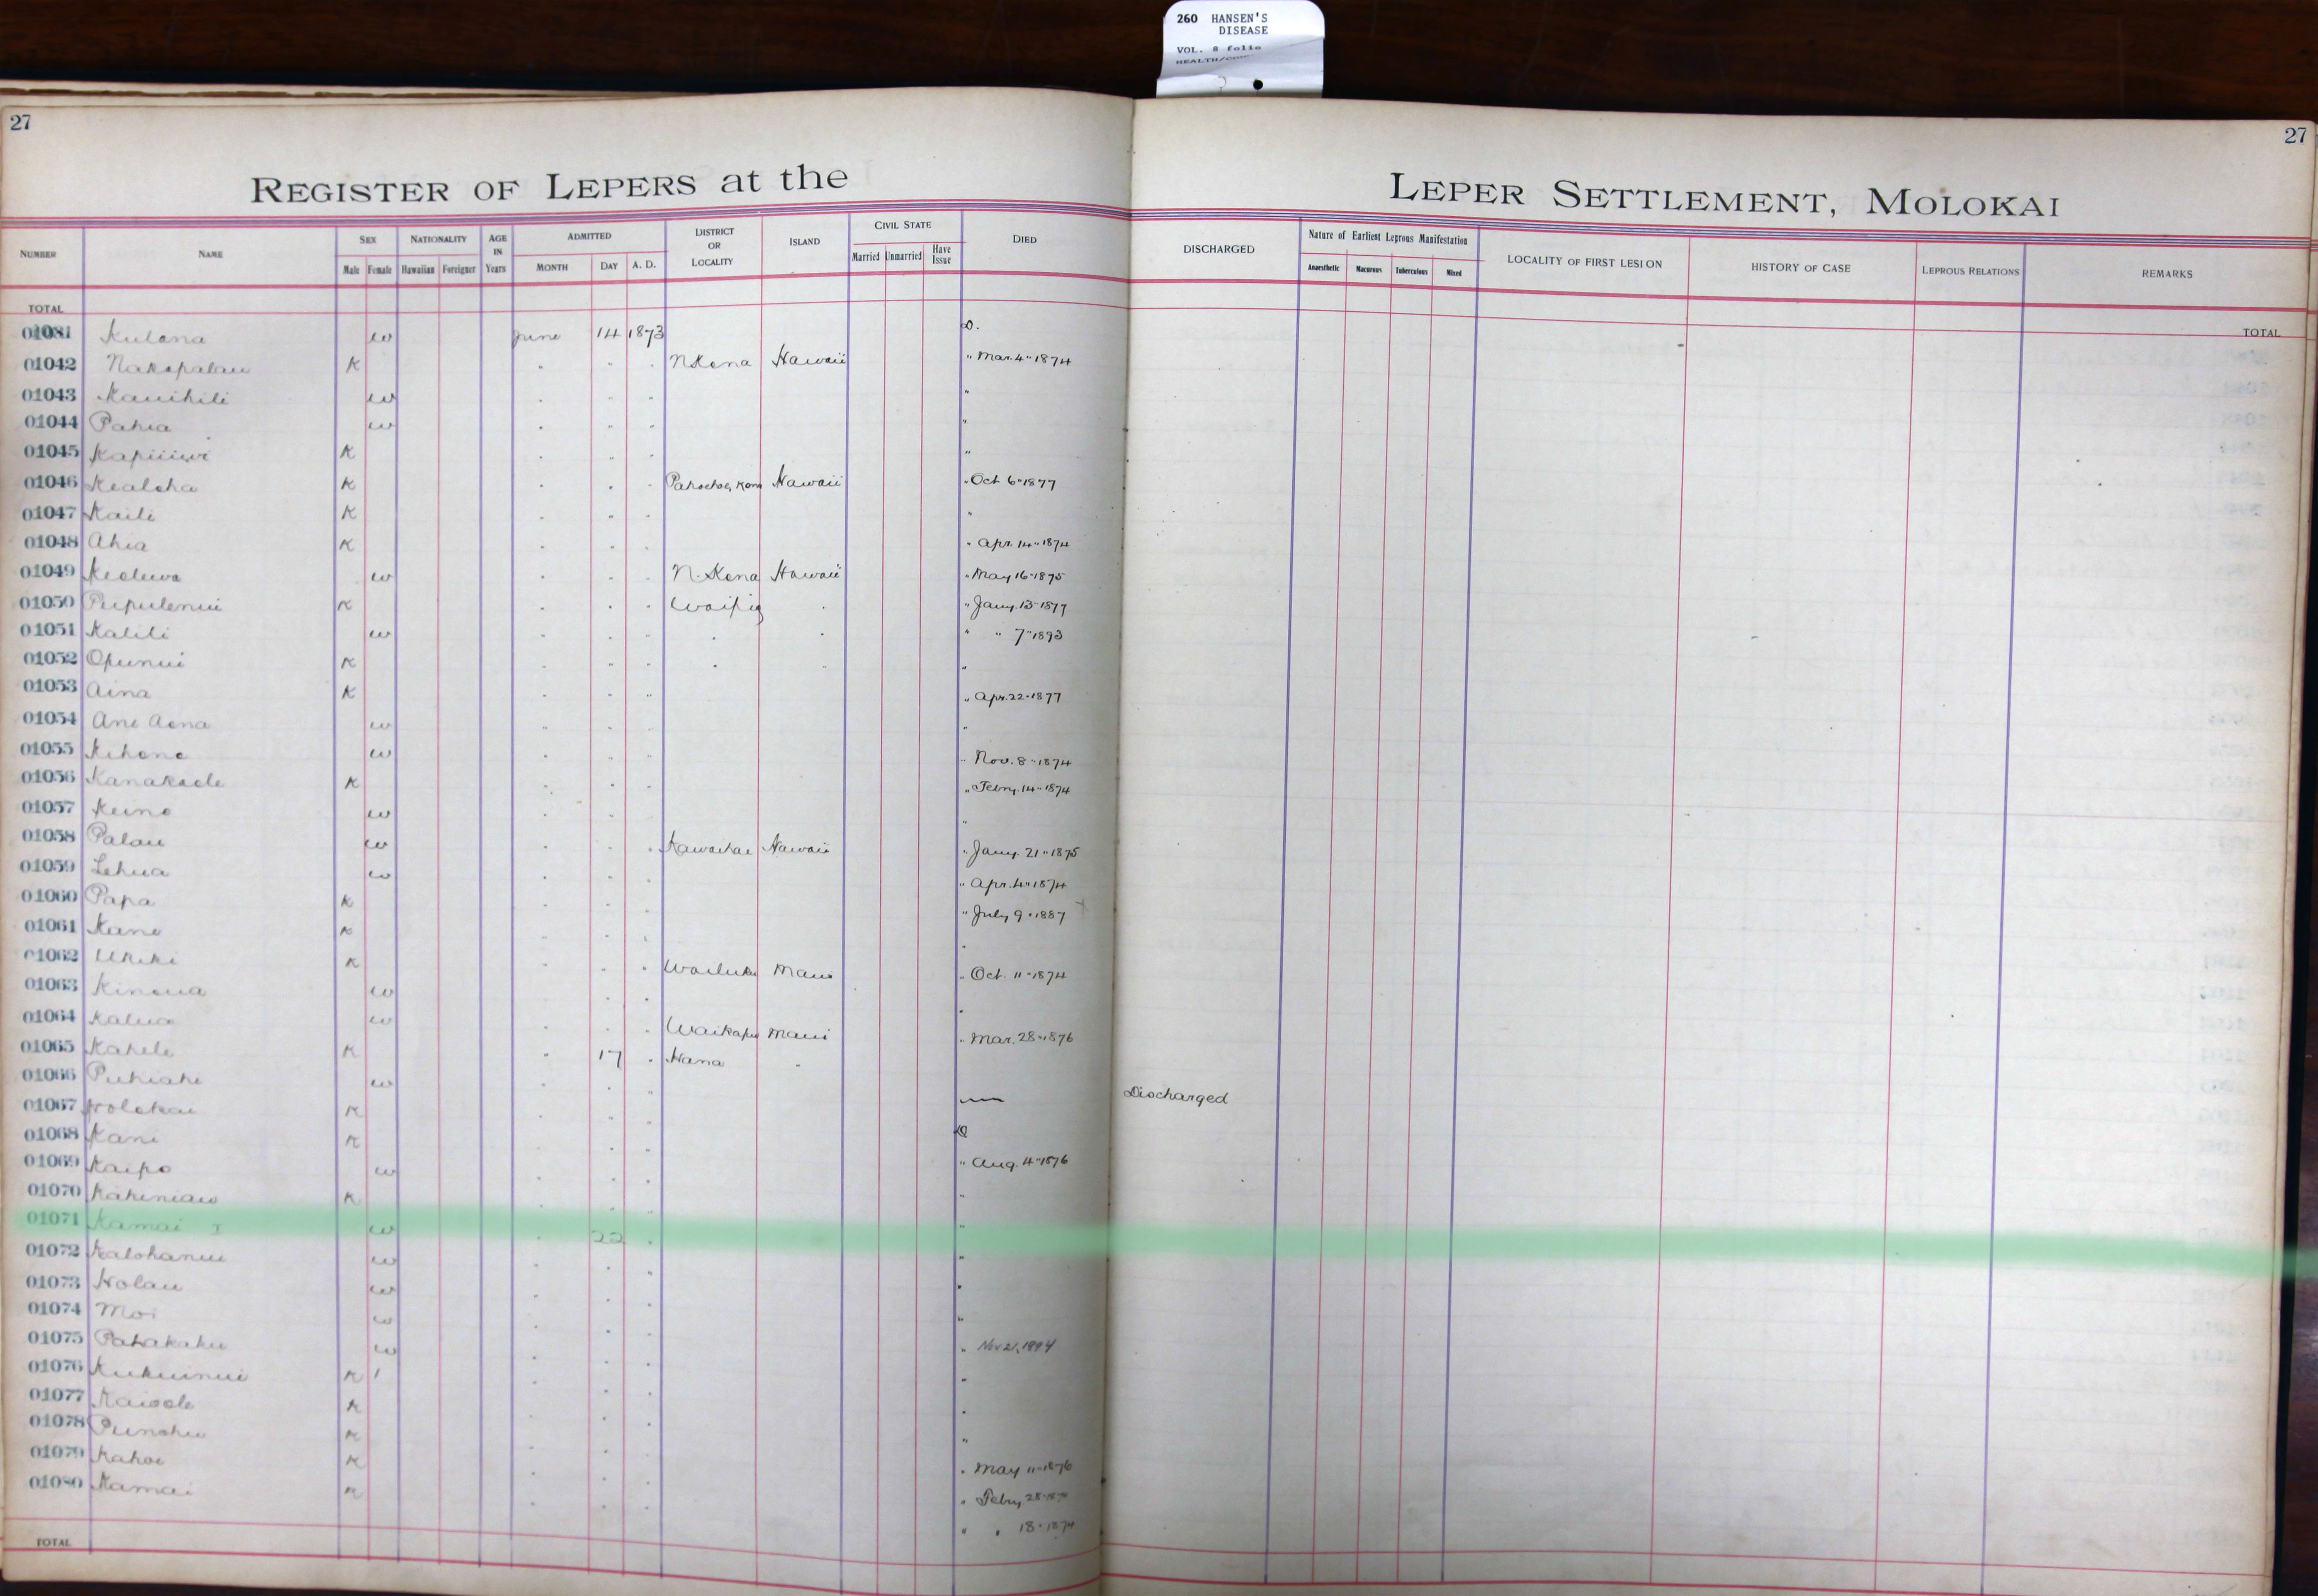 260 HANSEN'S
DISEASE
VOL. 8 folio
27
27
REGISTER OF LEPERS at the LEPER SETTLEMENT, MOLOKAI
NUMBER NAME SEX NATIONALITY AGE IN Years ADMITTED DISTRICT OR LOCALITY ISLAND CIVIL STATE DIED DISCHARGED Nature of Earliest Leprous Manifestation LOCALITY OF FIRST LESION HISTORY OF CASE LEPROUS RELATIONS REMARKS
Male Female Hawaiian Foreigner MONTH DAY A. D. Married Unmarried Have Issue Anaesthetic Macurous Tuberculous Mixed
TOTAL TOTAL
Kulana w June 14 1873 D.
01042 Nakapalau K " " " N Kona Hawaii " Mar. 4" 1874
01043 Kauihili w " " " "
01044 Pahia w " " " "
01045 K " " " "
01046 Kealoha K " " " Hawaii " Oct 6" 1877
01047 Kaili K " " " "
01048 Ahia K " " " " Apr. 14" 1874
01049 w " " " N. Kona Hawaii " May 16" 1875
01050 Pupulenui K " " " " " Jany. 13" 1877
01051 Kalili w " " " " " " " 7" 1893
01052 Opunui K " " " " " "
01053 Aina K " " " " Apr. 22" 1877
01054 Ane Aena w " " " "
01055 Kihene w " " " " Nov. 8" 1874
01056 Kanakaole K " " " " Febry. 14" 1874
01057 Keino w " " " "
01058 Palau w " " " Kawaihae Hawaii " Jany. 21" 1875
01059 Lehua w " " " " Apr. 4" 1874
01060 Papa K " " " " July 9" 1887
01061 Kane K " " " "
01062 Ukiki K " " " Wailuku Maui " Oct. 11" 1874
01063 Kinoua w " " " "
01064 Kalua w " " " Waikapu Maui " Mar. 28" 1876
01065 Kahele K " 17 " Hana "
01066 Puhiahi w " " " — Discharged
01067 Holokai K " " " D
01068 Kani K " " " " Aug. 4" 1876
01069 Kaipo w " " " "
01070 K " " " "
01071 Kamai I w " 22 " "
01072 Kalohanui w " " " "
01073 Holau w " " " "
01074 Moi w " " " "
01075 Pahakahu w " " " " Nov 21, 1894
01076 Kukuinui K " " " "
01077 Kaiaole K " " " "
01078 Punohu K " " " "
01079 Kahoe K " " " " May 11" 1876
01080 Kamai K " " " " Febry 28"
" " 18" 1874
TOTAL